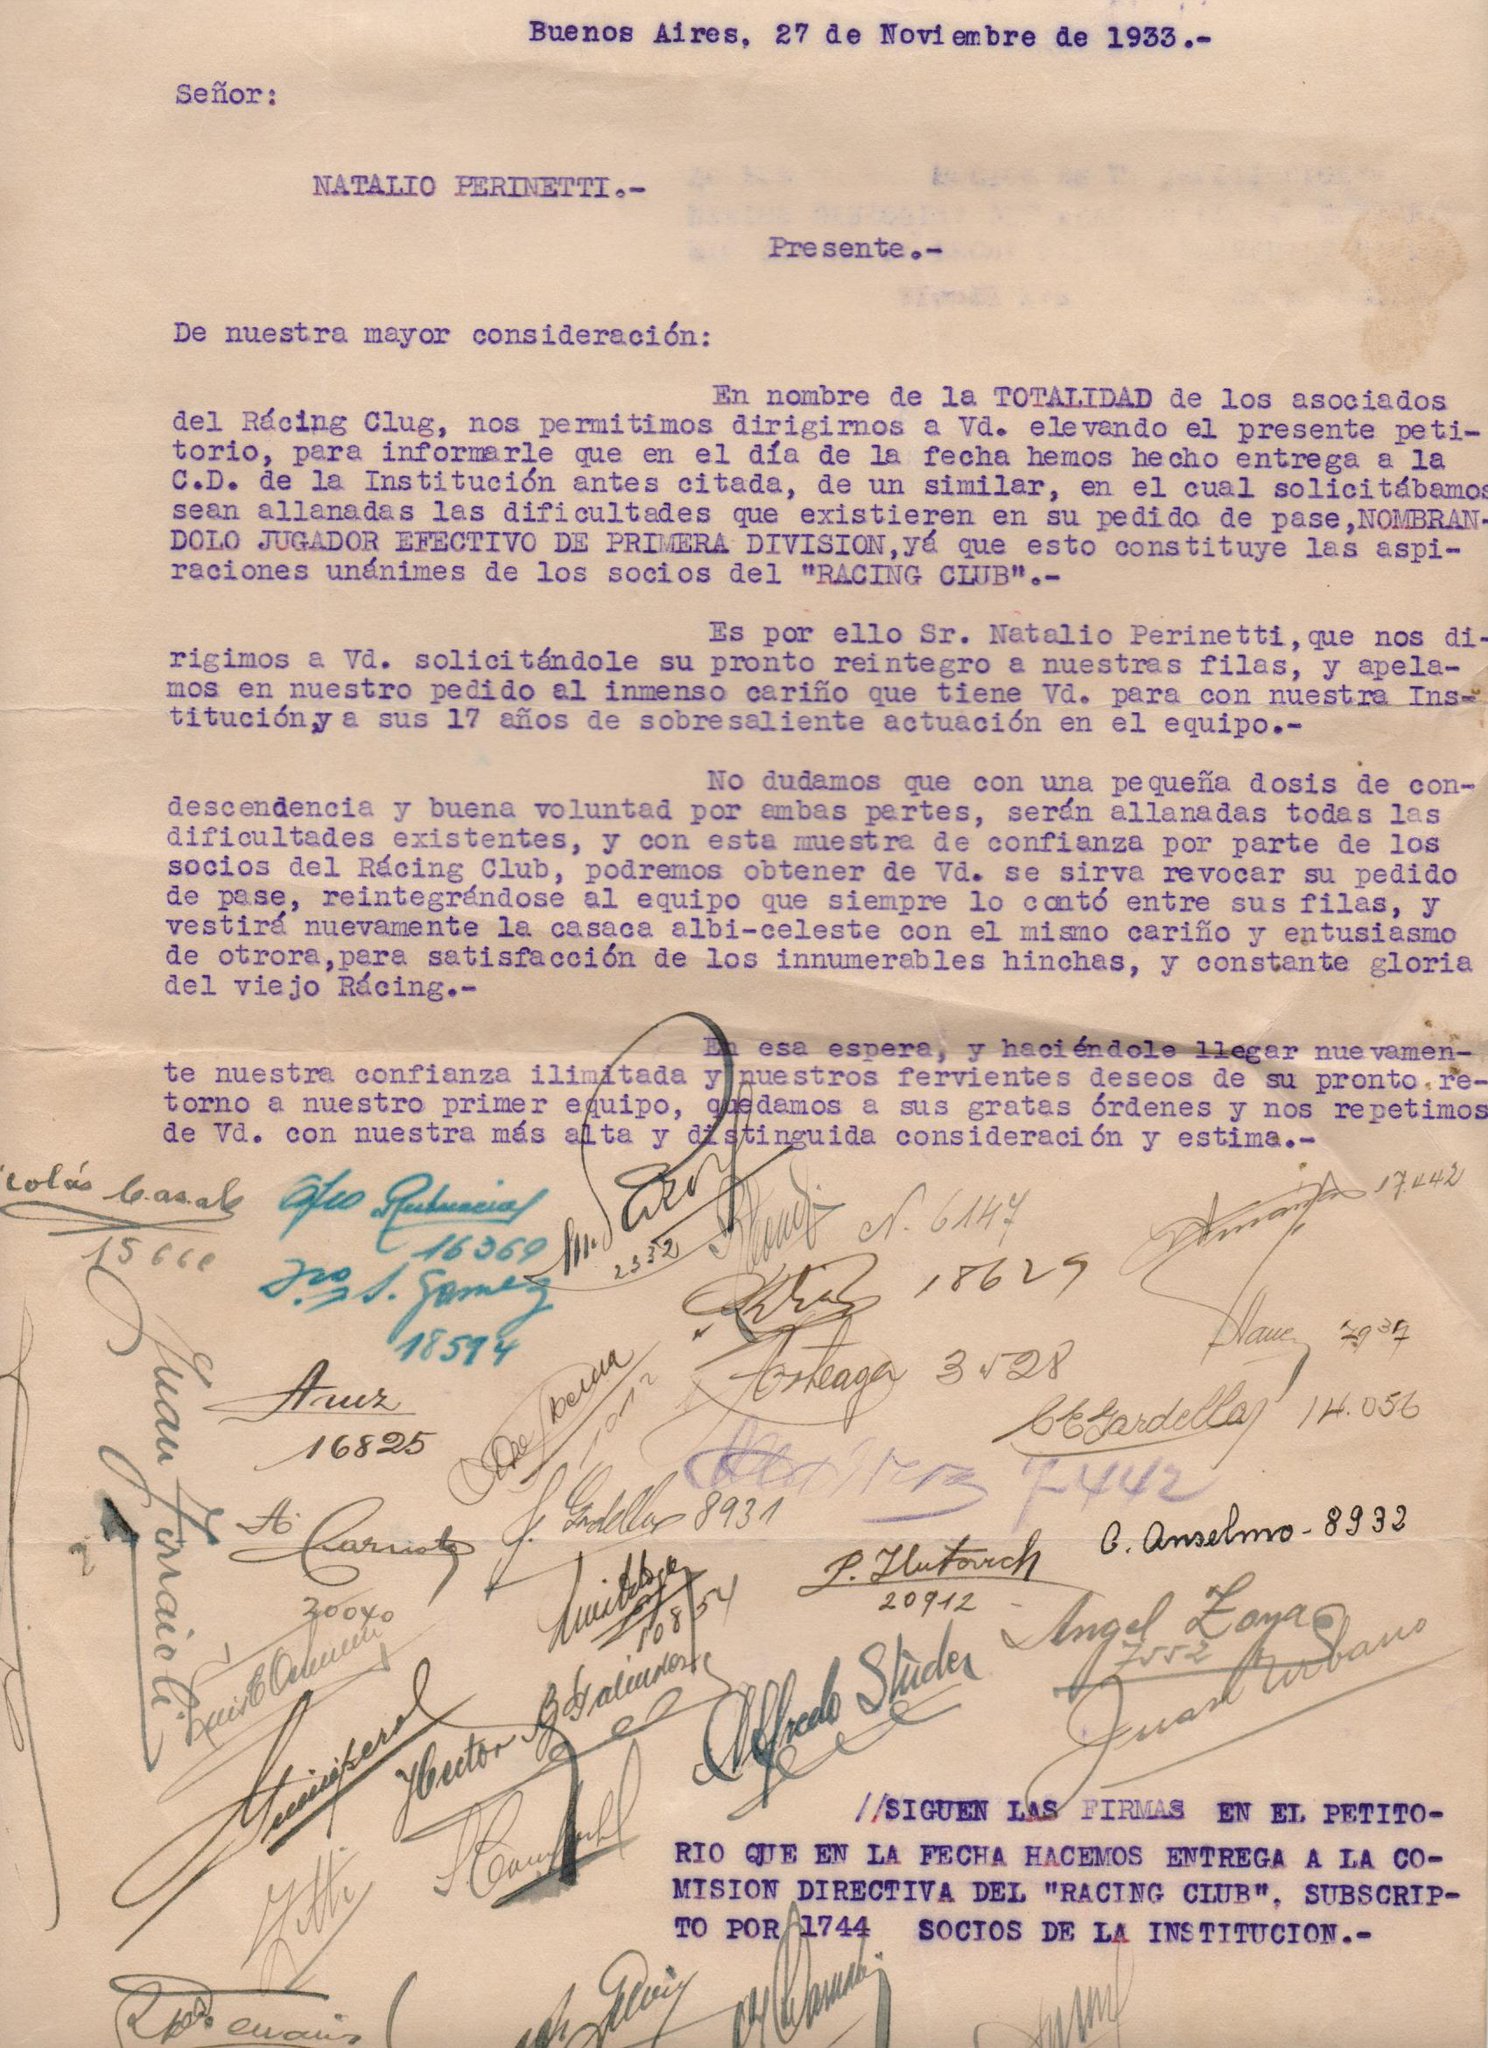 Buenos Aires, 27 de Noviembre de 1933.-
Señor:
NATALIO PERINETTI.-
Presente.-
De nuestra mayor consideración:
En nombre de la TOTALIDAD de los asociados
del Rácing Clug, nos permitimos dirigirnos a Vd. elevando el presente peti-
torio, para informarle que en el día de la fecha hemos hecho entrega a la
C.D. de la Institución antes citada, de un similar, en el cual solicitábamos
sean allanadas las dificultades que existieren en su pedido de pase,NOMBRAN-
DOLO JUGADOR EFECTIVO DE PRIMERA DIVISION,yá que esto constituye las aspi-
raciones unánimes de los socios del "RACING CLUB".-
Es por ello Sr. Natalio Perinetti,que nos di-
rigimos a Vd. solicitándole su pronto reintegro a nuestras filas, y apela-
mos en nuestro pedido al inmenso cariño que tiene Vd. para con nuestra Ins-
titución,y a sus 17 años de sobresaliente actuación en el equipo.-
No dudamos que con una pequeña dosis de con-
descendencia y buena voluntad por ambas partes, serán allanadas todas las
dificultades existentes, y con esta muestra de confianza por parte de los
socios del Rácing Club, podremos obtener de Vd. se sirva revocar su pedido
de pase, reintegrándose al equipo que siempre lo contó entre sus filas, y
vestirá nuevamente la casaca albi-celeste con el mismo cariño y entusiasmo
de otrora,para satisfacción de los innumerables hinchas, y constante gloria
del viejo Rácing.-
En esa espera, y haciéndole llegar nuevamen-
te nuestra confianza ilimitada y nuestros fervientes deseos de su pronto re-
torno a nuestro primer equipo, quedamos a sus gratas órdenes y nos repetimos
de Vd. con nuestra más alta y distinguida consideración y estima.-
17.442
N. 6147
16369
2332
18629
S. Gamez
18594
7937
Arteaga 3528
Aruz
16825
C E Gardella 14.056
7442
J. Gardella 8931
C. Anselmo - 8932
20912
20040
10854
Angel Zoya
7552
Juan Urbano
Alfredo Studer
Hector
Juan
//SIGUEN LAS FIRMAS EN EL PETITO-
RIO QUE EN LA FECHA HACEMOS ENTREGA A LA CO-
MISION DIRECTIVA DEL "RACING CLUB", SUBSCRIP-
TO POR 1744 SOCIOS DE LA INSTITUCION.-